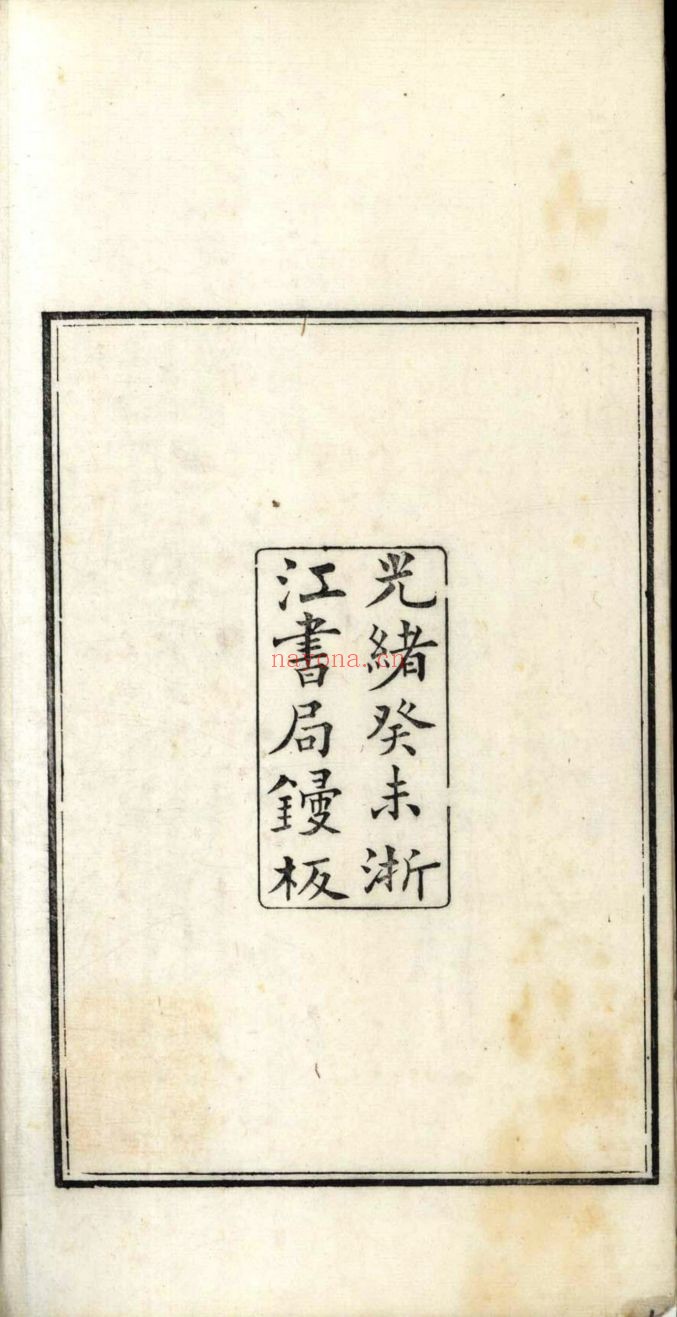 光緒癸未浙
江書局鋟板
nayona.cn